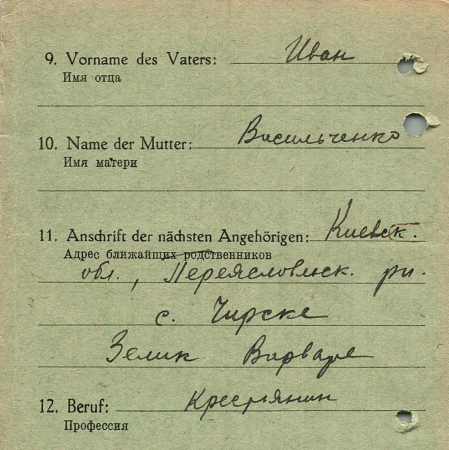 9. Vorname des Vaters: Иван
Имя отца
10. Name der Mutter: Васильченко
Имя матери
11. Anschrift der nächsten Angehörigen: Киевск.
Адрес ближайщих родственников
обл., Переясловльск. рн.
с. Чирске
Зелик Варваре
12. Beruf: Крестянин
Профессия